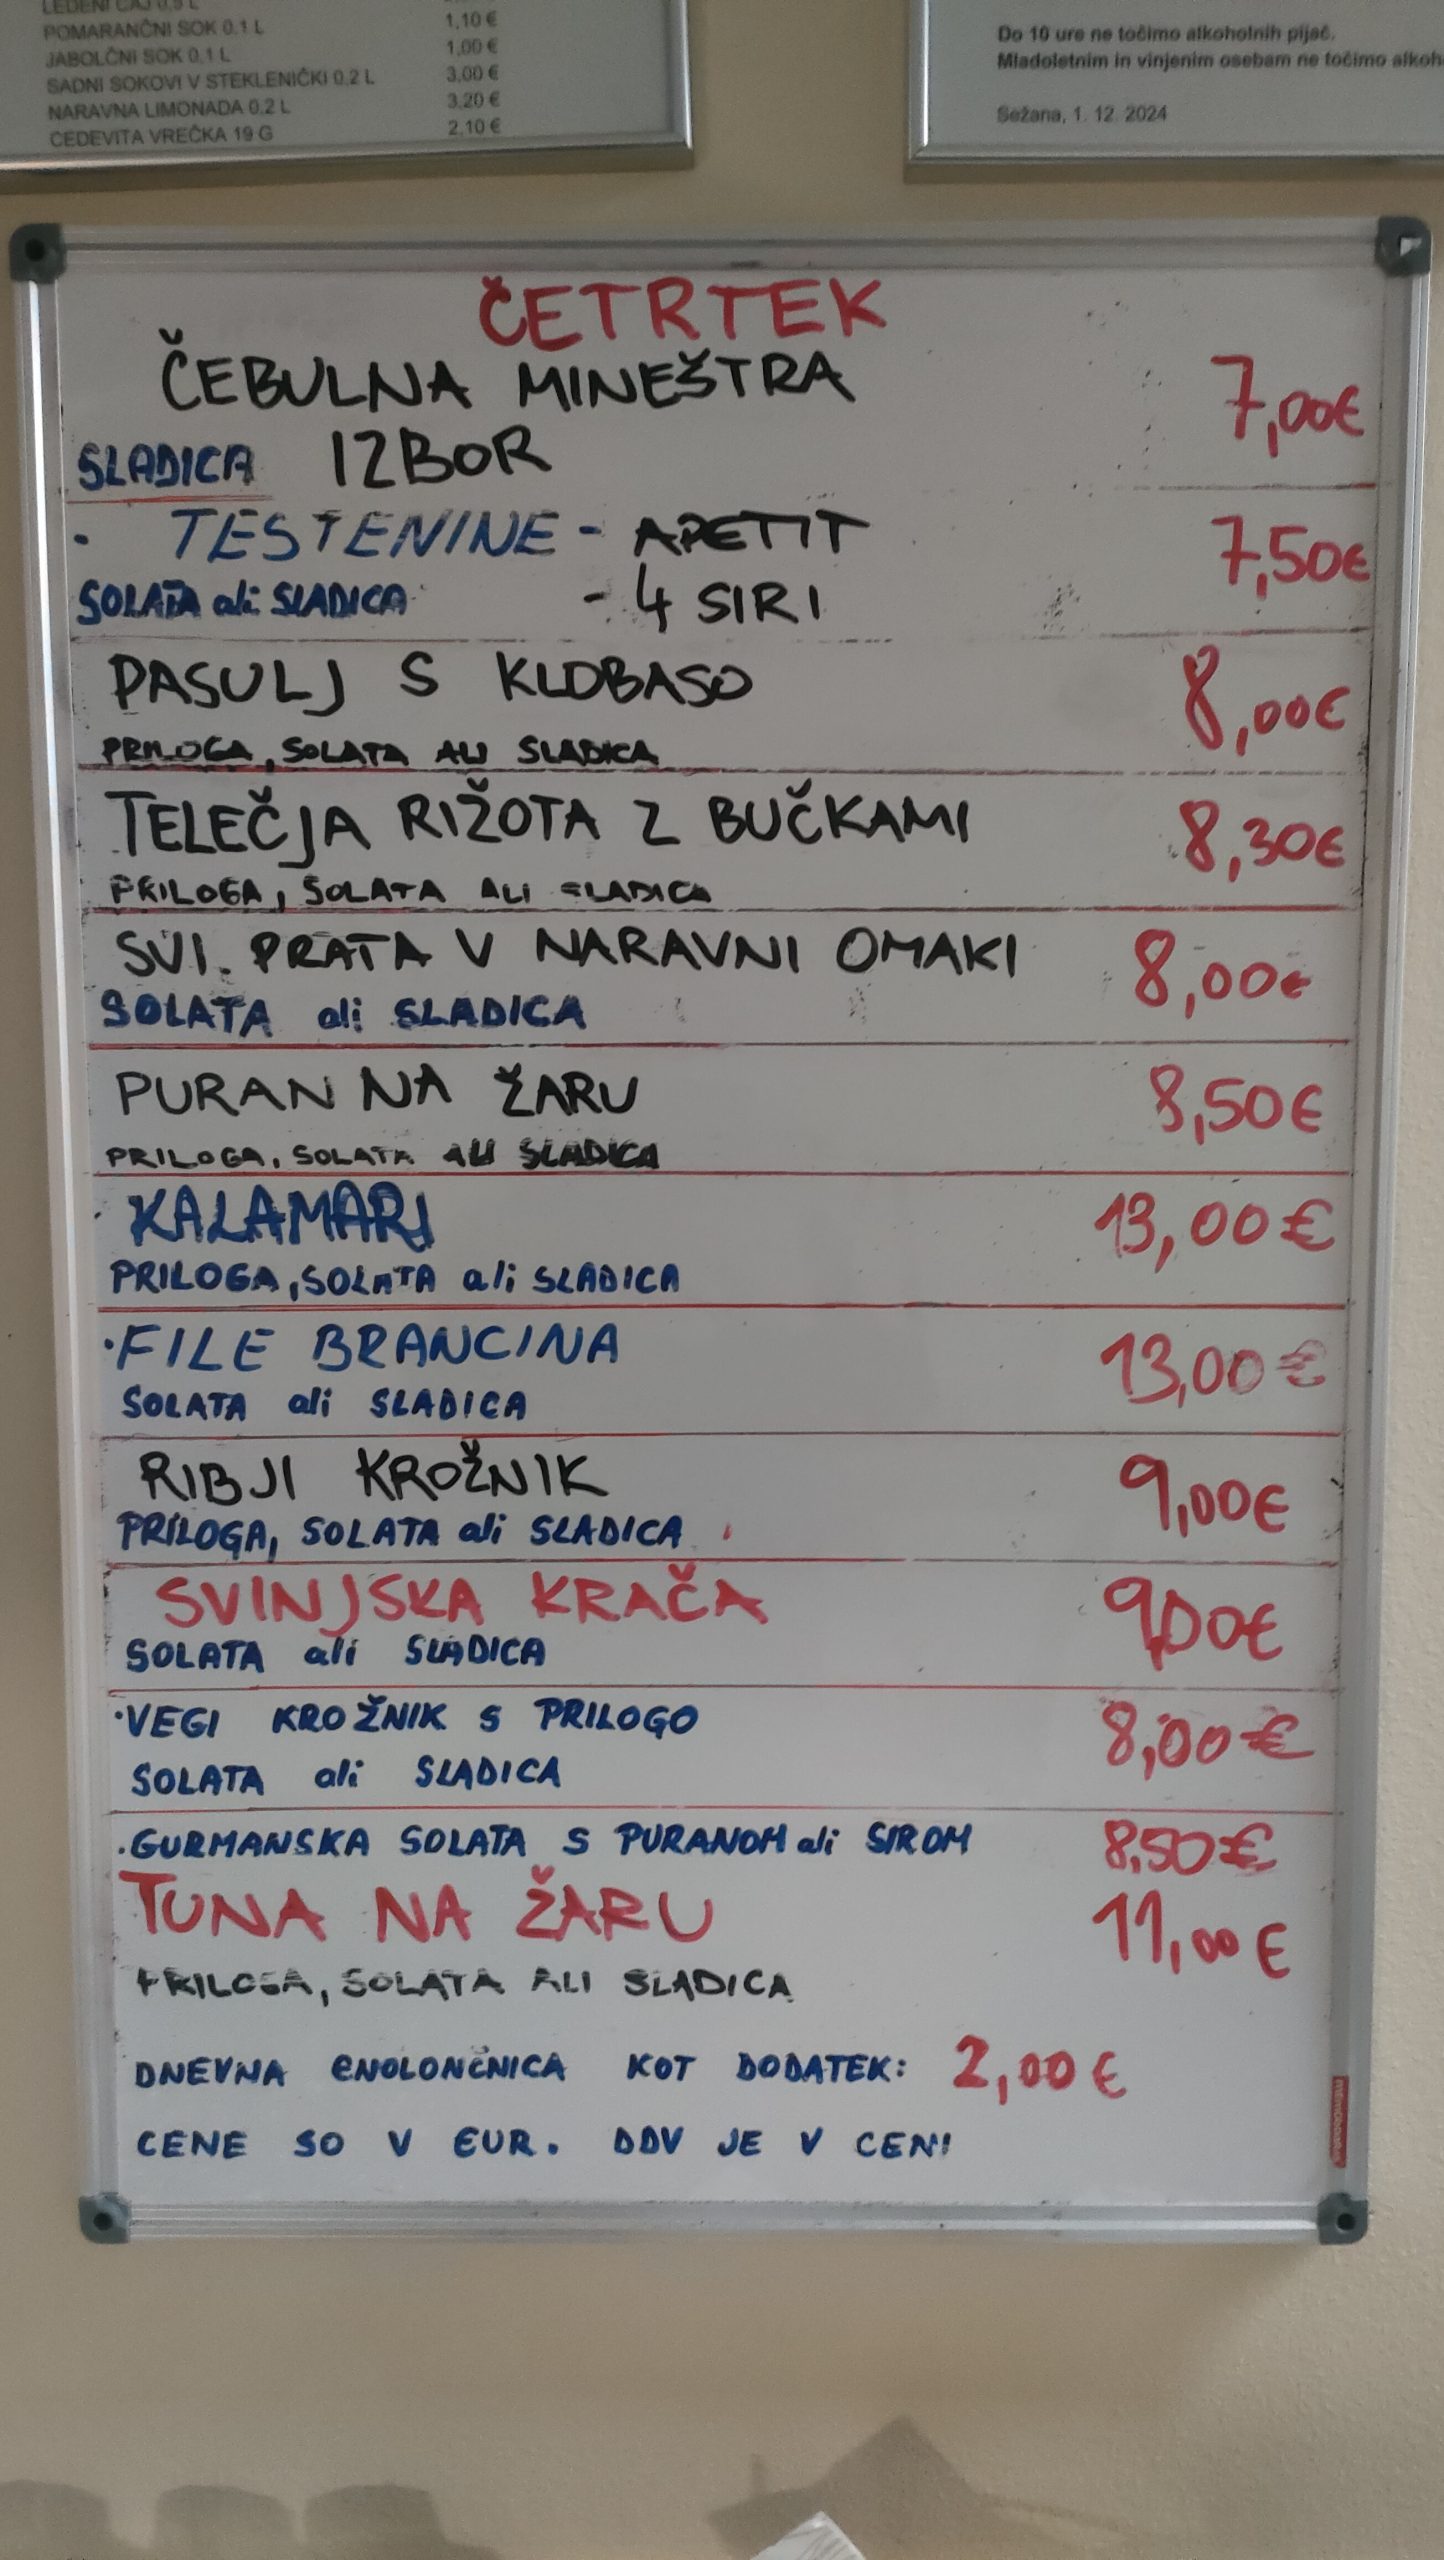 LEDENI ČAJ 0,5 L
POMARANČNI SOK 0,1 L 1,10 €
JABOLČNI SOK 0,1 L 1,00 €
SADNI SOKOVI V STEKLENIČKI 0,2 L 3,00 €
NARAVNA LIMONADA 0,2 L 3,20 €
CEDEVITA VREČKA 19 G 2,10 €
Do 10 ure ne točimo alkoholnih pijač.
Mladoletnim in vinjenim osebam ne točimo alkoh
Sežana, 1. 12. 2024
ČETRTEK
ČEBULNA MINEŠTRA 7,00€
SLADICA IZBOR
· TESTENINE - APETIT 7,50€
SOLATA ali SLADICA - 4 SIRI
PASULJ S KLOBASO 8,00€
PRILOGA, SOLATA ALI SLADICA
TELEČJA RIŽOTA Z BUČKAMI 8,30€
PRILOGA, SOLATA ALI SLADICA
SVI. PRATA V NARAVNI OMAKI 8,00€
SOLATA ali SLADICA
PURAN NA ŽARU 8,50€
PRILOGA, SOLATA ALI SLADICA
· KALAMARI 13,00€
PRILOGA, SOLATA ali SLADICA
· FILE BRANCINA 13,00€
SOLATA ali SLADICA
RIBJI KROŽNIK 9,00€
PRILOGA, SOLATA ali SLADICA
SVINJSKA KRAČA 9,00€
SOLATA ali SLADICA
· VEGI KROŽNIK S PRILOGO 8,00€
SOLATA ali SLADICA
· GURMANSKA SOLATA S PURANOM ali SIROM 8,50€
TUNA NA ŽARU 11,00€
PRILOGA, SOLATA ALI SLADICA
DNEVNA ENOLONČNICA KOT DODATEK: 2,00€
CENE SO V EUR. DDV JE V CENI